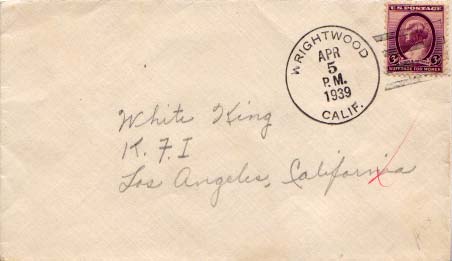 U.S. POSTAGE
3¢ 3¢
SUFFRAGE FOR WOMEN
WRIGHTWOOD
APR
5
P.M.
1939
CALIF.
White King
K. F. I
Los Angeles, California